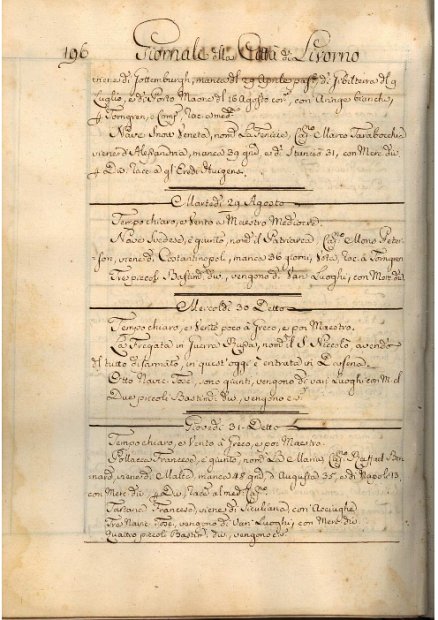 196 Giornale della Città di Livorno
viene di Gottemburgh, manca dal 29 Aprile pass.º, di Gibilterra dal 9
Luglio, e di Porto Maone dal 16 Agosto cor.e, con Aringe bianche,
p Torngren, e Comp. Rac. a med.º
Nave Snow Veneta, nom.ª La Fenice, Cap.º Marco Tarabocchia
viene d'Alessandria, manca 39 gnd, e di Stancio 31, con Merc. div.
p Div. Rac. a gl'Eredi Huigens.
Martedì 29 Agosto
Tempo chiaro, e Vento a Maestro Mediocre.
Nave Svedese, è giunto, nom.ª il Patriarca Cap.º Mons Peter-
son, viene di Costantinopoli, manca 36 giorni, Vota, Rac. a Torngren
Tre piccoli Bastim. div., vengono di Vari Luoghi, con Merc. div.
Mercoledì 30 Detto
Tempo chiaro, e Vento poco a Greco, e poi Maestro.
La Fregata in Guerra Russa, nom.ª il S. Niccolò, avendo
del tutto disarmato, in quest'oggi è entrata in Darsena.
Otto Nav. Tosc., sono giunti, vengono di varj Luoghi con M. d.
Due piccoli Bastim. div., vengono c.s.
Giovedì 31 Detto
Tempo chiaro, e Vento a Greco, e poi Maestro.
Pollacca Francese, è giunto, nom.ª La Maria, Cap.º Raffael Ber-
nard, viene di Malta, manca 48 gnd, d'Augusta 35, e di Napoli 13,
con Merc. div. p Div. Rac. al med. Cap.º
Tartana Francese, viene di Siculiana, con Acciughe
Tre Nav. Tosc., vengono di Vari Luoghi, con Merc. div.
Quattro piccoli Bastim. div., vengono c.s.